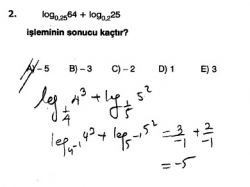 2. log₀,₂₅64 + log₀,₂25
işleminin sonucu kaçtır?
A) – 5 B) – 3 C) – 2 D) 1 E) 3
log_{1/4} 4³ + log_{1/5} 5²
log_{4⁻¹} 4³ + log_{5⁻¹} 5² = 3/-1 + 2/-1
= -5